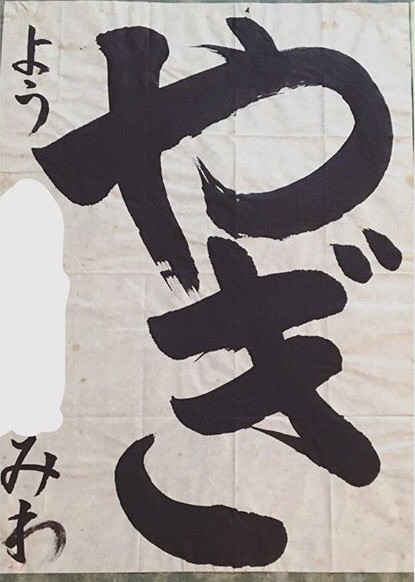 やぎ
よう
みわ